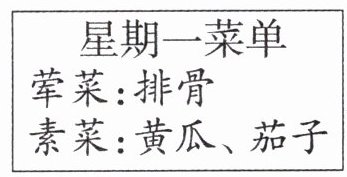 星期一菜单
荤菜:排骨
素菜:黄瓜、茄子